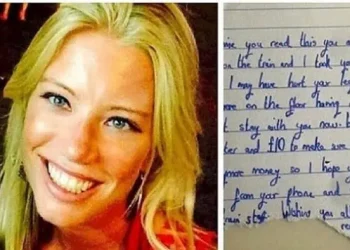 you read this you
on the train and I took you
I may have hurt your
on the floor having a
stay with you now.
and £10 to make sure
more money so I hope
from your phone and
you